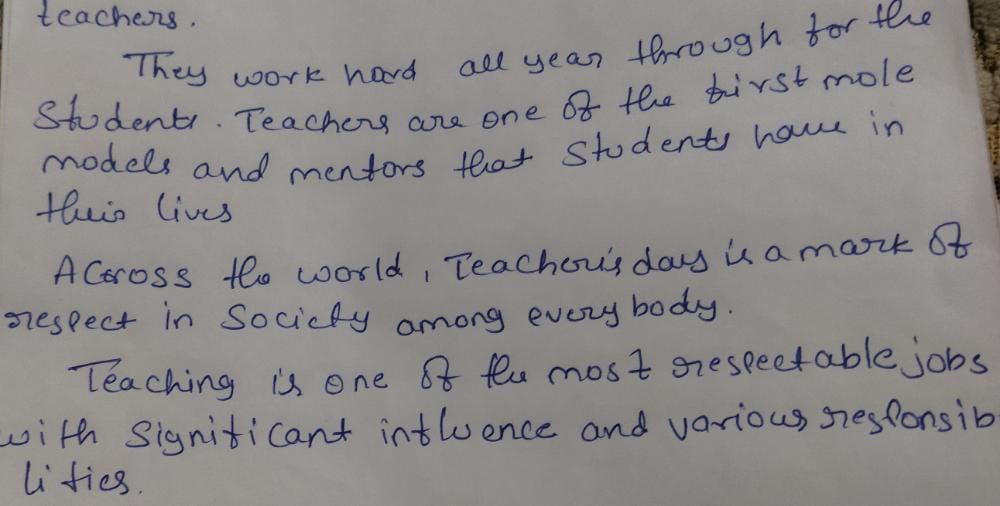 teachers.
They work hard all year through for the
Students. Teachers are one of the first mole
models and mentors that Students have in
their lives
Across the world, Teacher's day is a mark of
respect in Society among everybody.
Teaching is one of the most respectable jobs
with Significant influence and various responsib
lities.